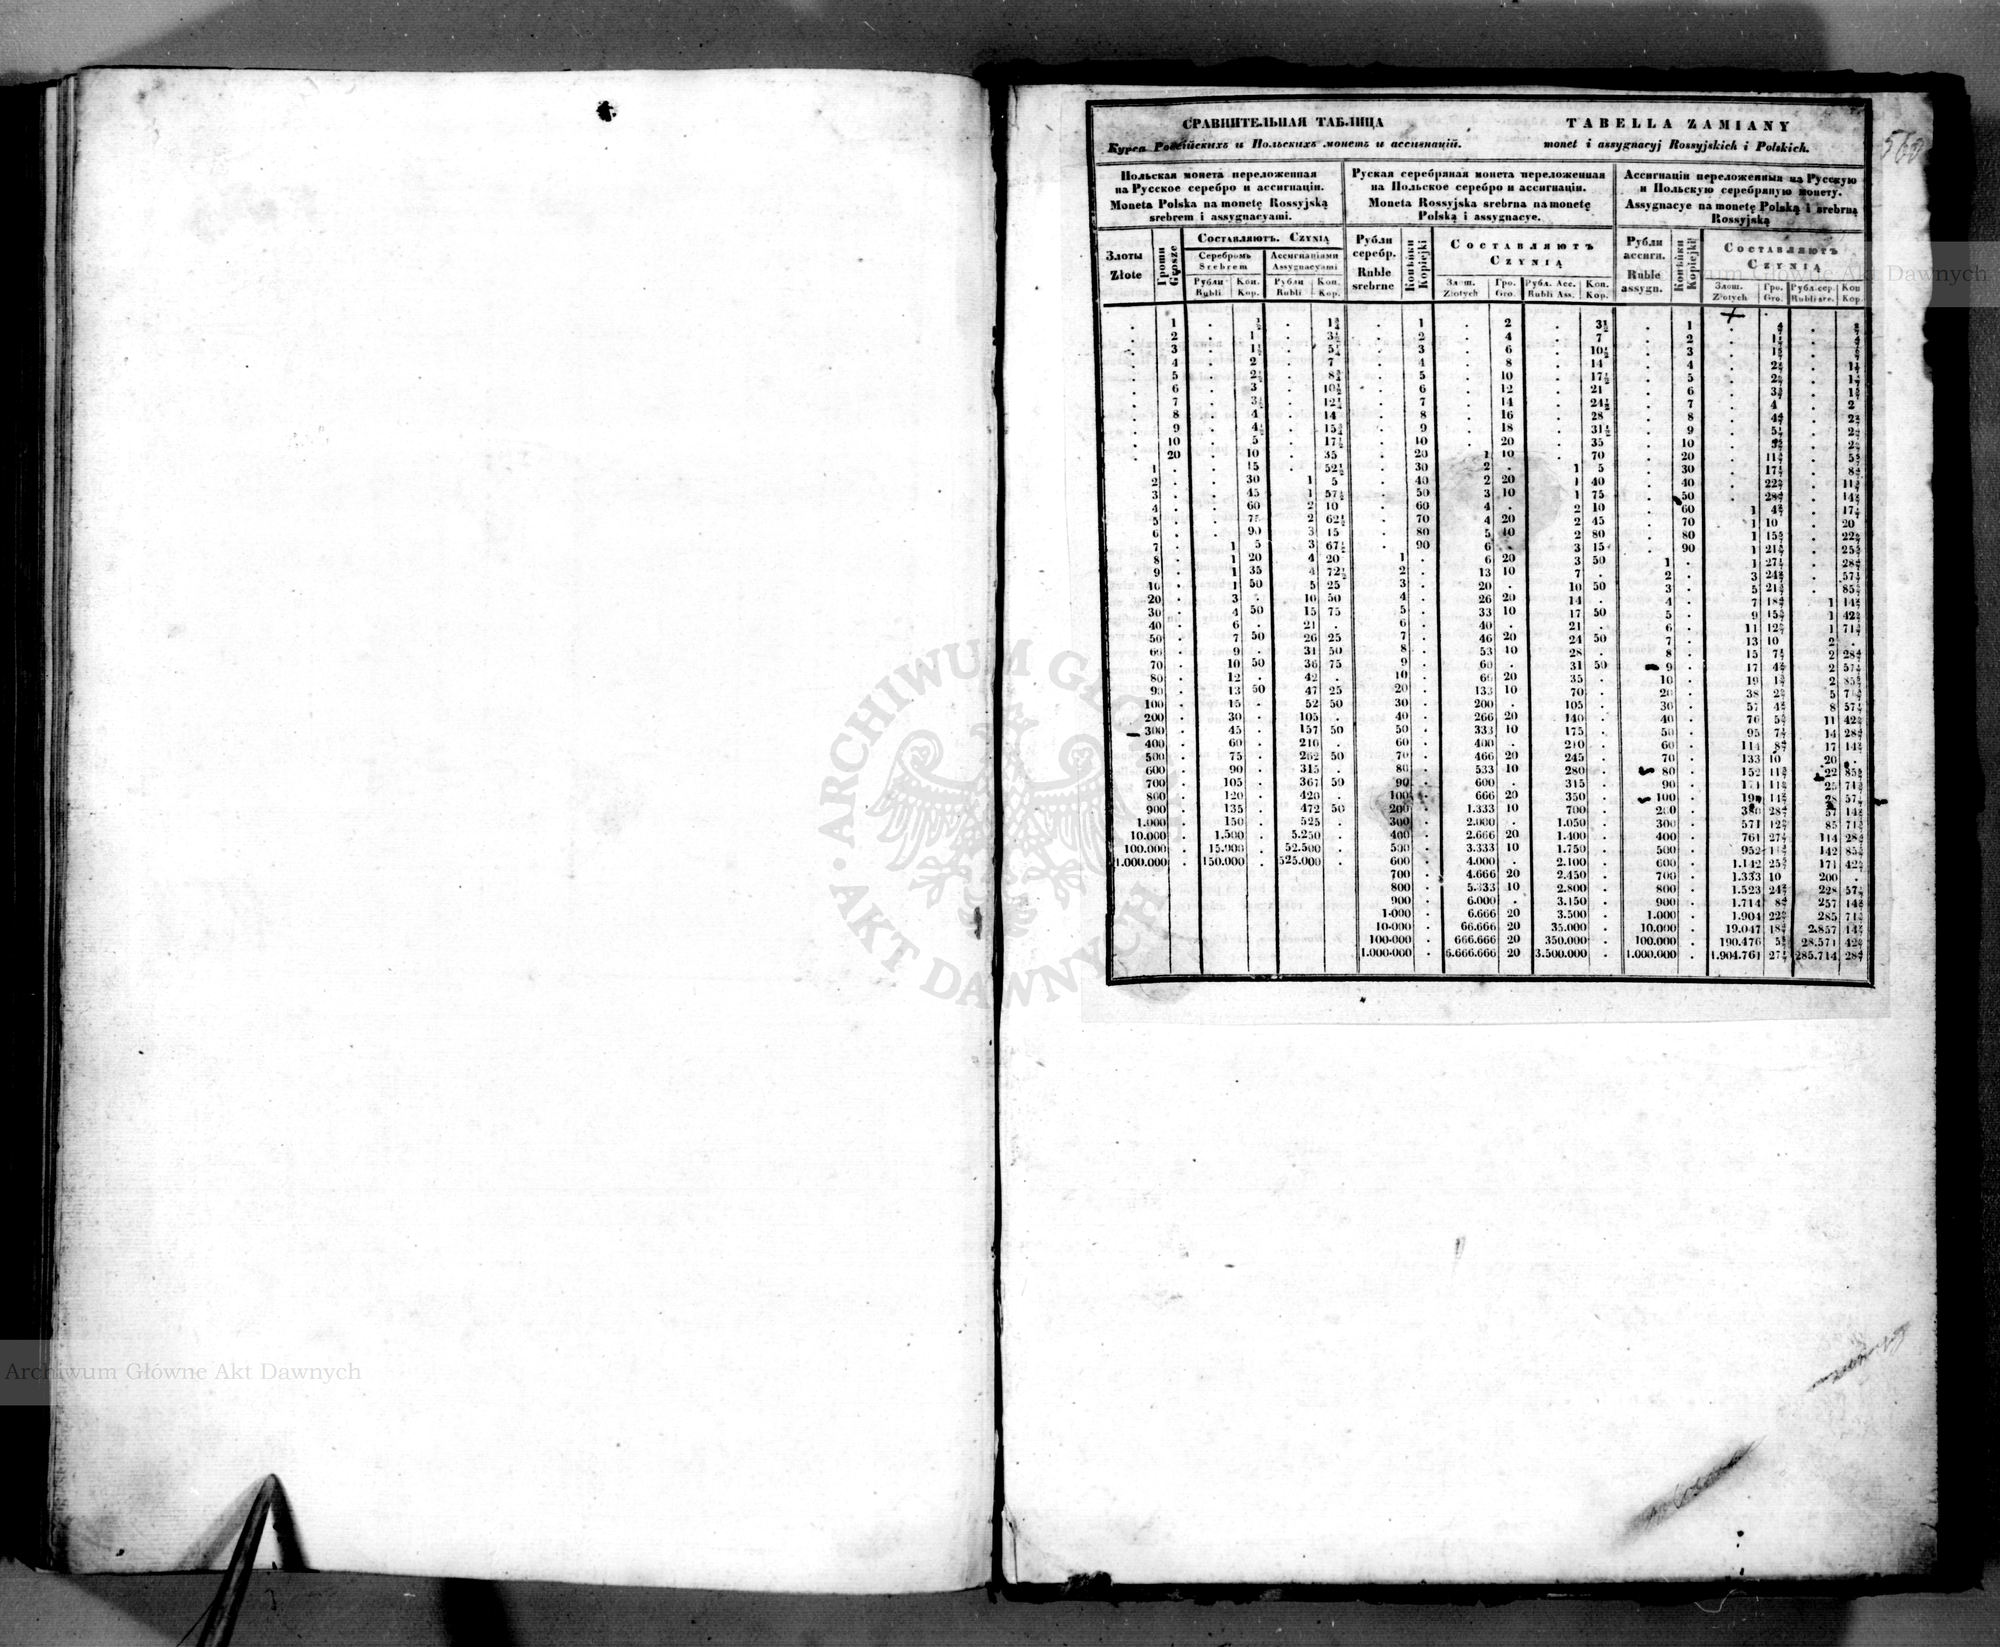 560
СРАВНИТЕЛЬНАЯ ТАБЛИЦА
Курса Россійскихъ и Польскихъ монетъ и ассигнацій.
TABELLA ZAMIANY
monet i assygnacyj Rossyjskich i Polskich.
Польская монета переложенная
на Русское серебро и ассигнаціи.
Moneta Polska na monetę Rossyjską
srebrem i assygnacyami.
Злоты
Złote
Гроши
Grosze
Составляютъ. Czynią
Серебромъ
Srebrem
Ассигнаціями
Assygnacyami
Рубли Rubli
Коп. Kop.
Рубли Rubli
Коп. Kop.
. 1 . ½ . 1¾
. 2 . 1 . 3½
. 3 . 1½ . 5¼
. 4 . 2 . 7
. 5 . 2½ . 8¾
. 6 . 3 . 10½
. 7 . 3½ . 12¼
. 8 . 4 . 14
. 9 . 4½ . 15¾
. 10 . 5 . 17½
. 20 . 10 . 35
1 . . 15 . 52½
2 . . 30 1 5
3 . . 45 1 57½
4 . . 60 2 10
5 . . 75 2 62½
6 . . 90 3 15
7 . 1 5 3 67½
8 . 1 20 4 20
9 . 1 35 4 72½
10 . 1 50 5 25
20 . 3 . 10 50
30 . 4 50 15 75
40 . 6 . 21 .
50 . 7 50 26 25
60 . 9 . 31 50
70 . 10 50 36 75
80 . 12 . 42 .
90 . 13 50 47 25
100 . 15 . 52 50
200 . 30 . 105 .
300 . 45 . 157 50
400 . 60 . 210 .
500 . 75 . 262 50
600 . 90 . 315 .
700 . 105 . 367 50
800 . 120 . 420 .
900 . 135 . 472 50
1.000 . 150 . 525 .
10.000 . 1.500 . 5.250 .
100.000 . 15.000 . 52.500 .
1.000.000 . 150.000 . 525.000 .
Руская серебряная монета переложенная
на Польское серебро и ассигнаціи.
Moneta Rossyjska srebrna na monetę
Polską i assygnacye.
Рубли
серебр.
Ruble
srebrne
Копѣйки
Kopiejki
Составляютъ
Czynią
Злот. Złotych
Гро. Gro.
Рубл. Асс. Rubli Ass.
Коп. Kop.
. 1 . 2 . 3½
. 2 . 4 . 7
. 3 . 6 . 10½
. 4 . 8 . 14
. 5 . 10 . 17½
. 6 . 12 . 21
. 7 . 14 . 24½
. 8 . 16 . 28
. 9 . 18 . 31½
. 10 . 20 . 35
. 20 1 10 . 70
. 30 2 . 1 5
. 40 2 20 1 40
. 50 3 10 1 75
. 60 4 . 2 10
. 70 4 20 2 45
. 80 5 10 2 80
. 90 6 . 3 15
1 . 6 20 3 50
2 . 13 10 7 .
3 . 20 . 10 50
4 . 26 20 14 .
5 . 33 10 17 50
6 . 40 . 21 .
7 . 46 20 24 50
8 . 53 10 28 .
9 . 60 . 31 50
10 . 66 20 35 .
20 . 133 10 70 .
30 . 200 . 105 .
40 . 266 20 140 .
50 . 333 10 175 .
60 . 400 . 210 .
70 . 466 20 245 .
80 . 533 10 280 .
90 . 600 . 315 .
100 . 666 20 350 .
200 . 1.333 10 700 .
300 . 2.000 . 1.050 .
400 . 2.666 20 1.400 .
500 . 3.333 10 1.750 .
600 . 4.000 . 2.100 .
700 . 4.666 20 2.450 .
800 . 5.333 10 2.800 .
900 . 6.000 . 3.150 .
1-000 . 6.666 20 3.500 .
10-000 . 66.666 20 35.000 .
100-000 . 666.666 20 350.000 .
1.000-000 . 6.666.666 20 3.500.000 .
Ассигнаціи переложенныя на Русскую
и Польскую серебряную монету.
Assygnacye na monetę Polską i srebrną
Rossyjską
Рубли
ассигн.
Ruble
assygn.
Копѣйки
Kopiejki
Составляютъ
Czynią
Злот. Złotych
Гро. Gro.
Рубл. сер. Rubli sre.
Коп Kop.
. 1 . 4/7 . 2/7
. 2 . 1 1/7 . 4/7
. 3 . 1 5/7 . 6/7
. 4 . 2 2/7 . 1 1/7
. 5 . 2 6/7 . 1 3/7
. 6 . 3 3/7 . 1 5/7
. 7 . 4 . 2
. 8 . 4 4/7 . 2 2/7
. 9 . 5 1/7 . 2 4/7
. 10 . 5 5/7 . 2 6/7
. 20 . 11 3/7 . 5 5/7
. 30 . 17 1/7 . 8 4/7
. 40 . 22 6/7 . 11 3/7
. 50 . 28 4/7 . 14 2/7
. 60 1 4 2/7 . 17 1/7
. 70 1 10 . 20
. 80 1 15 5/7 . 22 6/7
. 90 1 21 3/7 . 25 5/7
1 . 1 27 1/7 . 28 4/7
2 . 3 24 2/7 . 57 1/7
3 . 5 21 3/7 . 85 5/7
4 . 7 18 4/7 1 14 2/7
5 . 9 15 5/7 1 42 6/7
6 . 11 12 6/7 1 71 3/7
7 . 13 10 2 .
8 . 15 7 1/7 2 28 4/7
9 . 17 4 2/7 2 57 1/7
10 . 19 1 3/7 2 85 5/7
20 . 38 2 6/7 5 71 3/7
30 . 57 4 2/7 8 57 1/7
40 . 76 5 5/7 11 42 6/7
50 . 95 7 1/7 14 28 4/7
60 . 114 8 4/7 17 14 2/7
70 . 133 10 20 .
80 . 152 11 3/7 22 85 5/7
90 . 171 25 71 3/7
100 . 190 14 2/7 28 57 1/7
200 . 380 28 4/7 57 14 2/7
300 . 571 12 6/7 85 71 3/7
400 . 761 27 1/7 114 28 4/7
500 . 952 11 3/7 142 85 5/7
600 . 1.142 25 5/7 171 42 6/7
700 . 1.333 10 200 .
800 . 1.523 24 2/7 228 57 1/7
900 . 1.714 8 4/7 257 14 2/7
1.000 . 1.904 22 6/7 285 71 3/7
10.000 . 19.047 18 4/7 2.857 14 2/7
100.000 . 190.476 5 5/7 28.571 42 6/7
1.000.000 . 1.904.761 27 1/7 285.714 28 4/7
Archiwum Główne Akt Dawnych
ARCHIWUM GŁÓWNE AKT DAWNYCH
Archiwum Główne Akt Dawnych